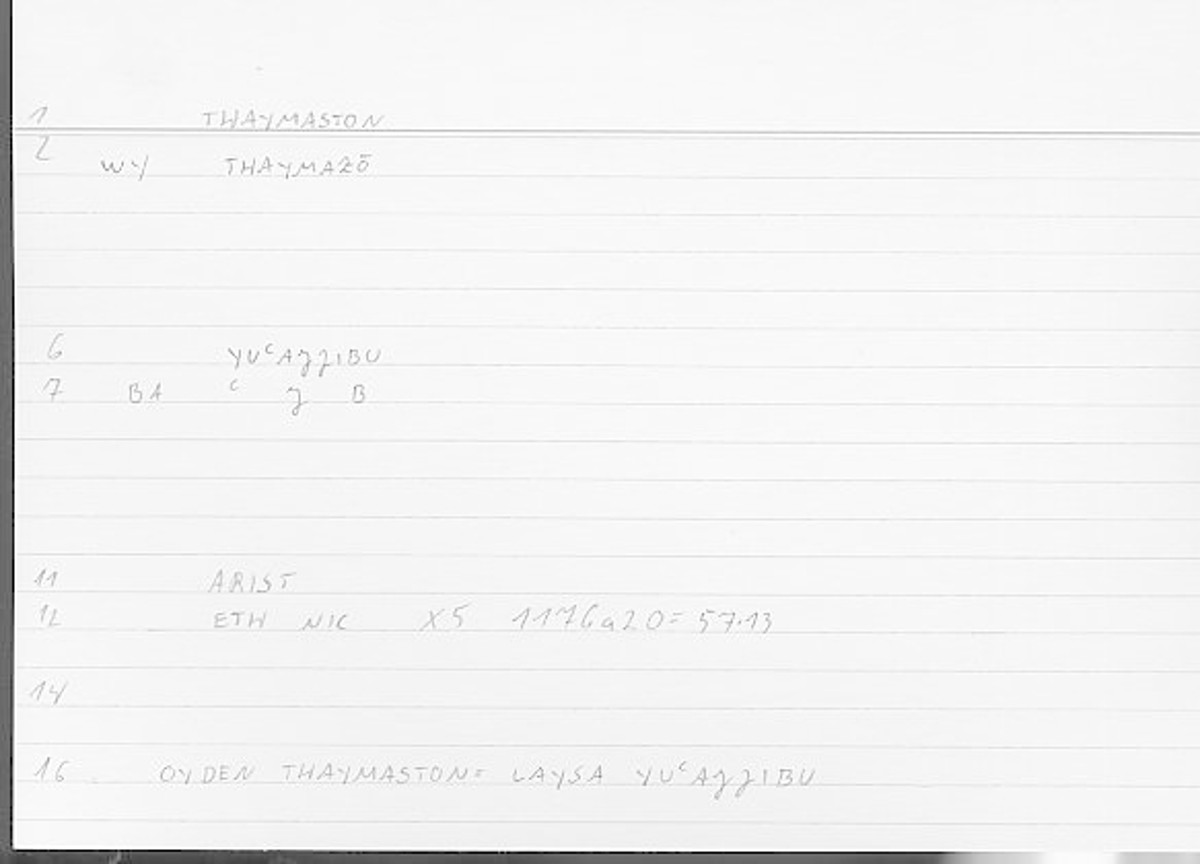 1 THAYMASTON
2 WY THAYMAZŌ
6 YUᶜAJJIBU
7 BA ᶜ J B
11 ARIST
12 ETH NIC X5 1176a20= 57.13
14
16 OYDEN THAYMASTON= LAYSA YUᶜAJJIBU